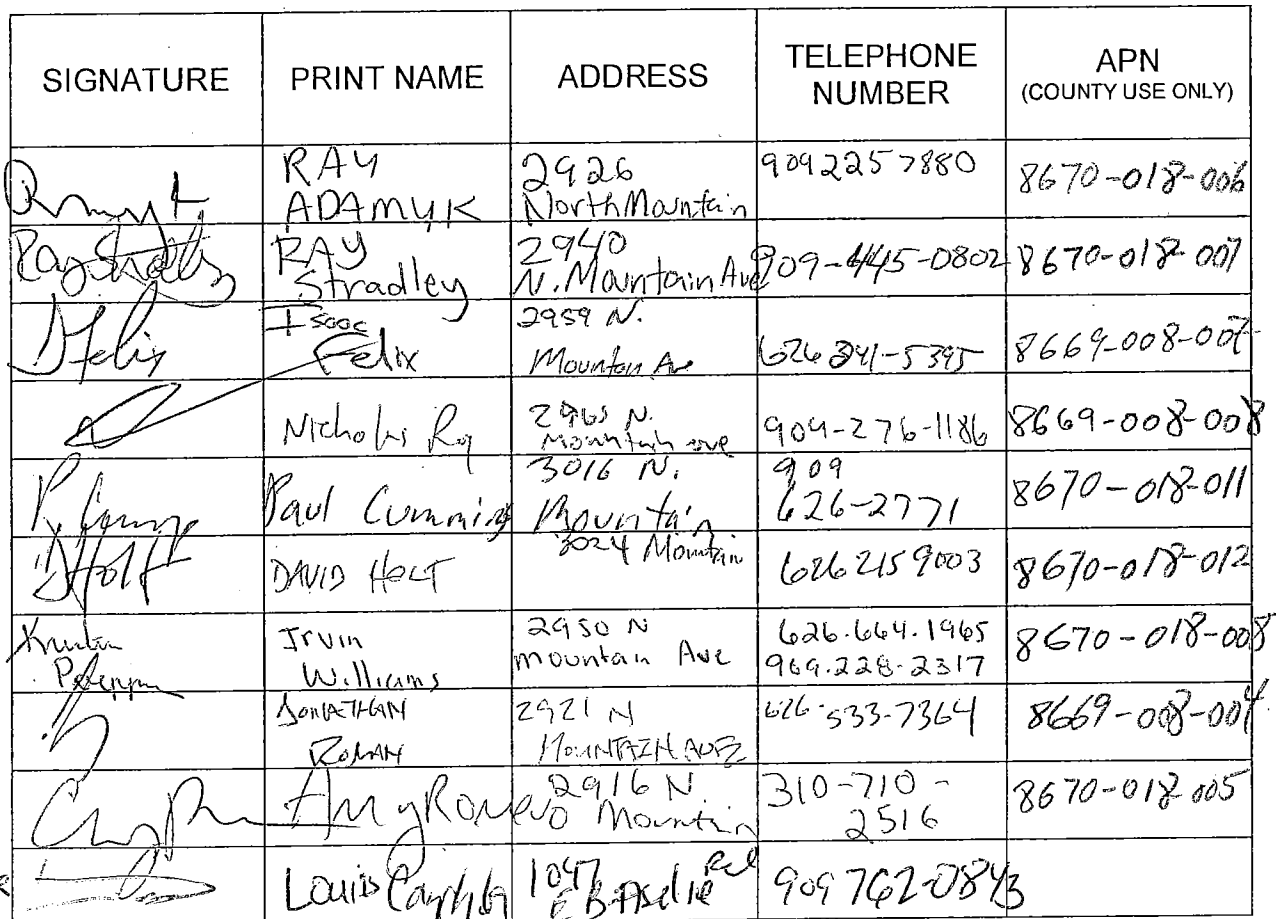 SIGNATURE PRINT NAME ADDRESS TELEPHONE NUMBER APN (COUNTY USE ONLY)
RAY ADAMYK 2926 North Mountain 909 225 7880 8670-018-006
Ray Stradley RAY Stradley 2940 N. Mountain Ave 909-445-0802 8670-018-007
Felix Isaac Felix 2959 N. Mountain Ave 626 241-5395 8669-008-007
Nicholas Roy N. Mountain ave 909-276-1186 8669-008-008
Paul Cumming 3016 N. Mountain 909 626-2771 8670-018-011
DHolt DAVID HOLT 3024 Mountain 626 215 9003 8670-018-012
Irvin Williams 2950 N mountain Ave 626.664.1965 909.228-2317 8670-018-008
JONATHAN ROMAN 2921 N MOUNTAIN AVE 626-533-7364 8669-008-004
Amy Romero 2916 N Mountain 310-710-2516 8670-018-005
Louis 1047 E Baselie Rd 909 762-0843